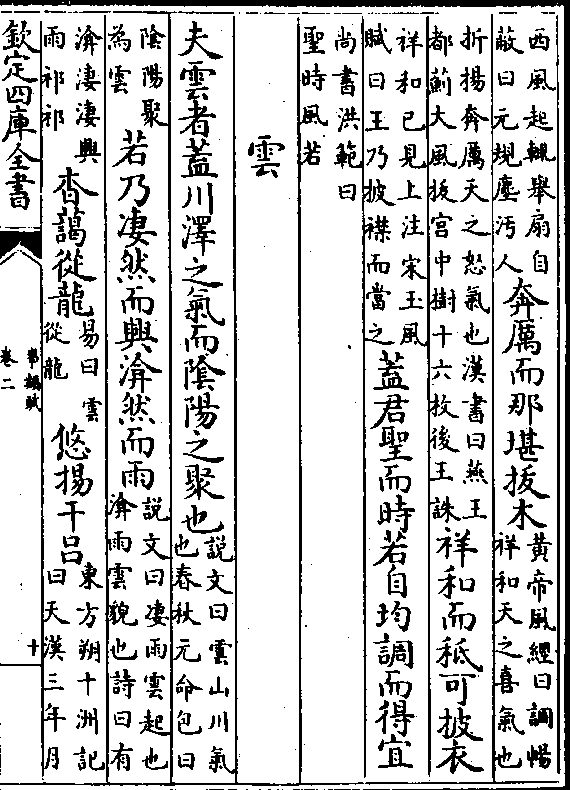 西風起輒舉扇自
蔽曰元規塵汚人
奔厲而那堪拔木
黄帝風經曰調暢
祥和天之喜氣也
折揚奔厲天之怒氣也漢書曰燕王
都薊大風拔宫中樹十六枚後王誅
祥和而秪可披衣
祥和已見上注宋玉風
賦曰王乃披襟而當之
蓋君聖而時若自均調而得宜
尚書洪範曰
聖時風若
雲
夫雲者蓋川澤之氣而陰陽之聚也
説文曰雲山川氣
也春秋元命包曰
陰陽聚
為雲
若乃凄然而興渰然而雨
説文曰凄雨雲起也
渰雨雲貌也詩曰有
渰凄凄興
雨祁祁
杳藹從龍
易曰雲
從龍
悠揚干吕
東方朔十洲記
曰天漢三年月
欽定四庫全書
卷二
事類賦
十